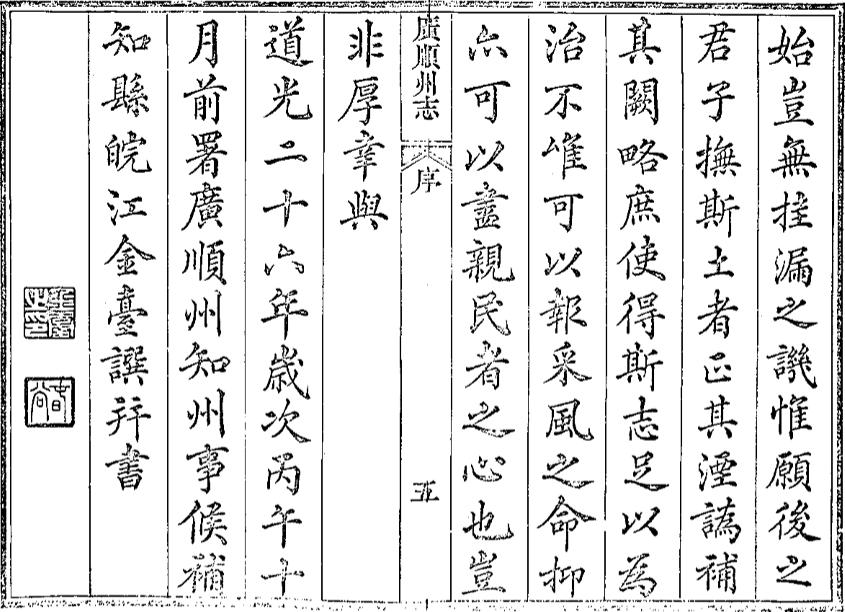 始豈無挂漏之譏惟願後之
君子撫斯土者正其湮譌補
其闕略庶使得斯志足以為
治不惟可以報采風之命抑
亦可以盡親民者之心也豈
廣順州志
序
五
非厚幸與
道光二十六年歲次丙午十
月前署廣順州知州事候補
知縣皖江金臺譔并書